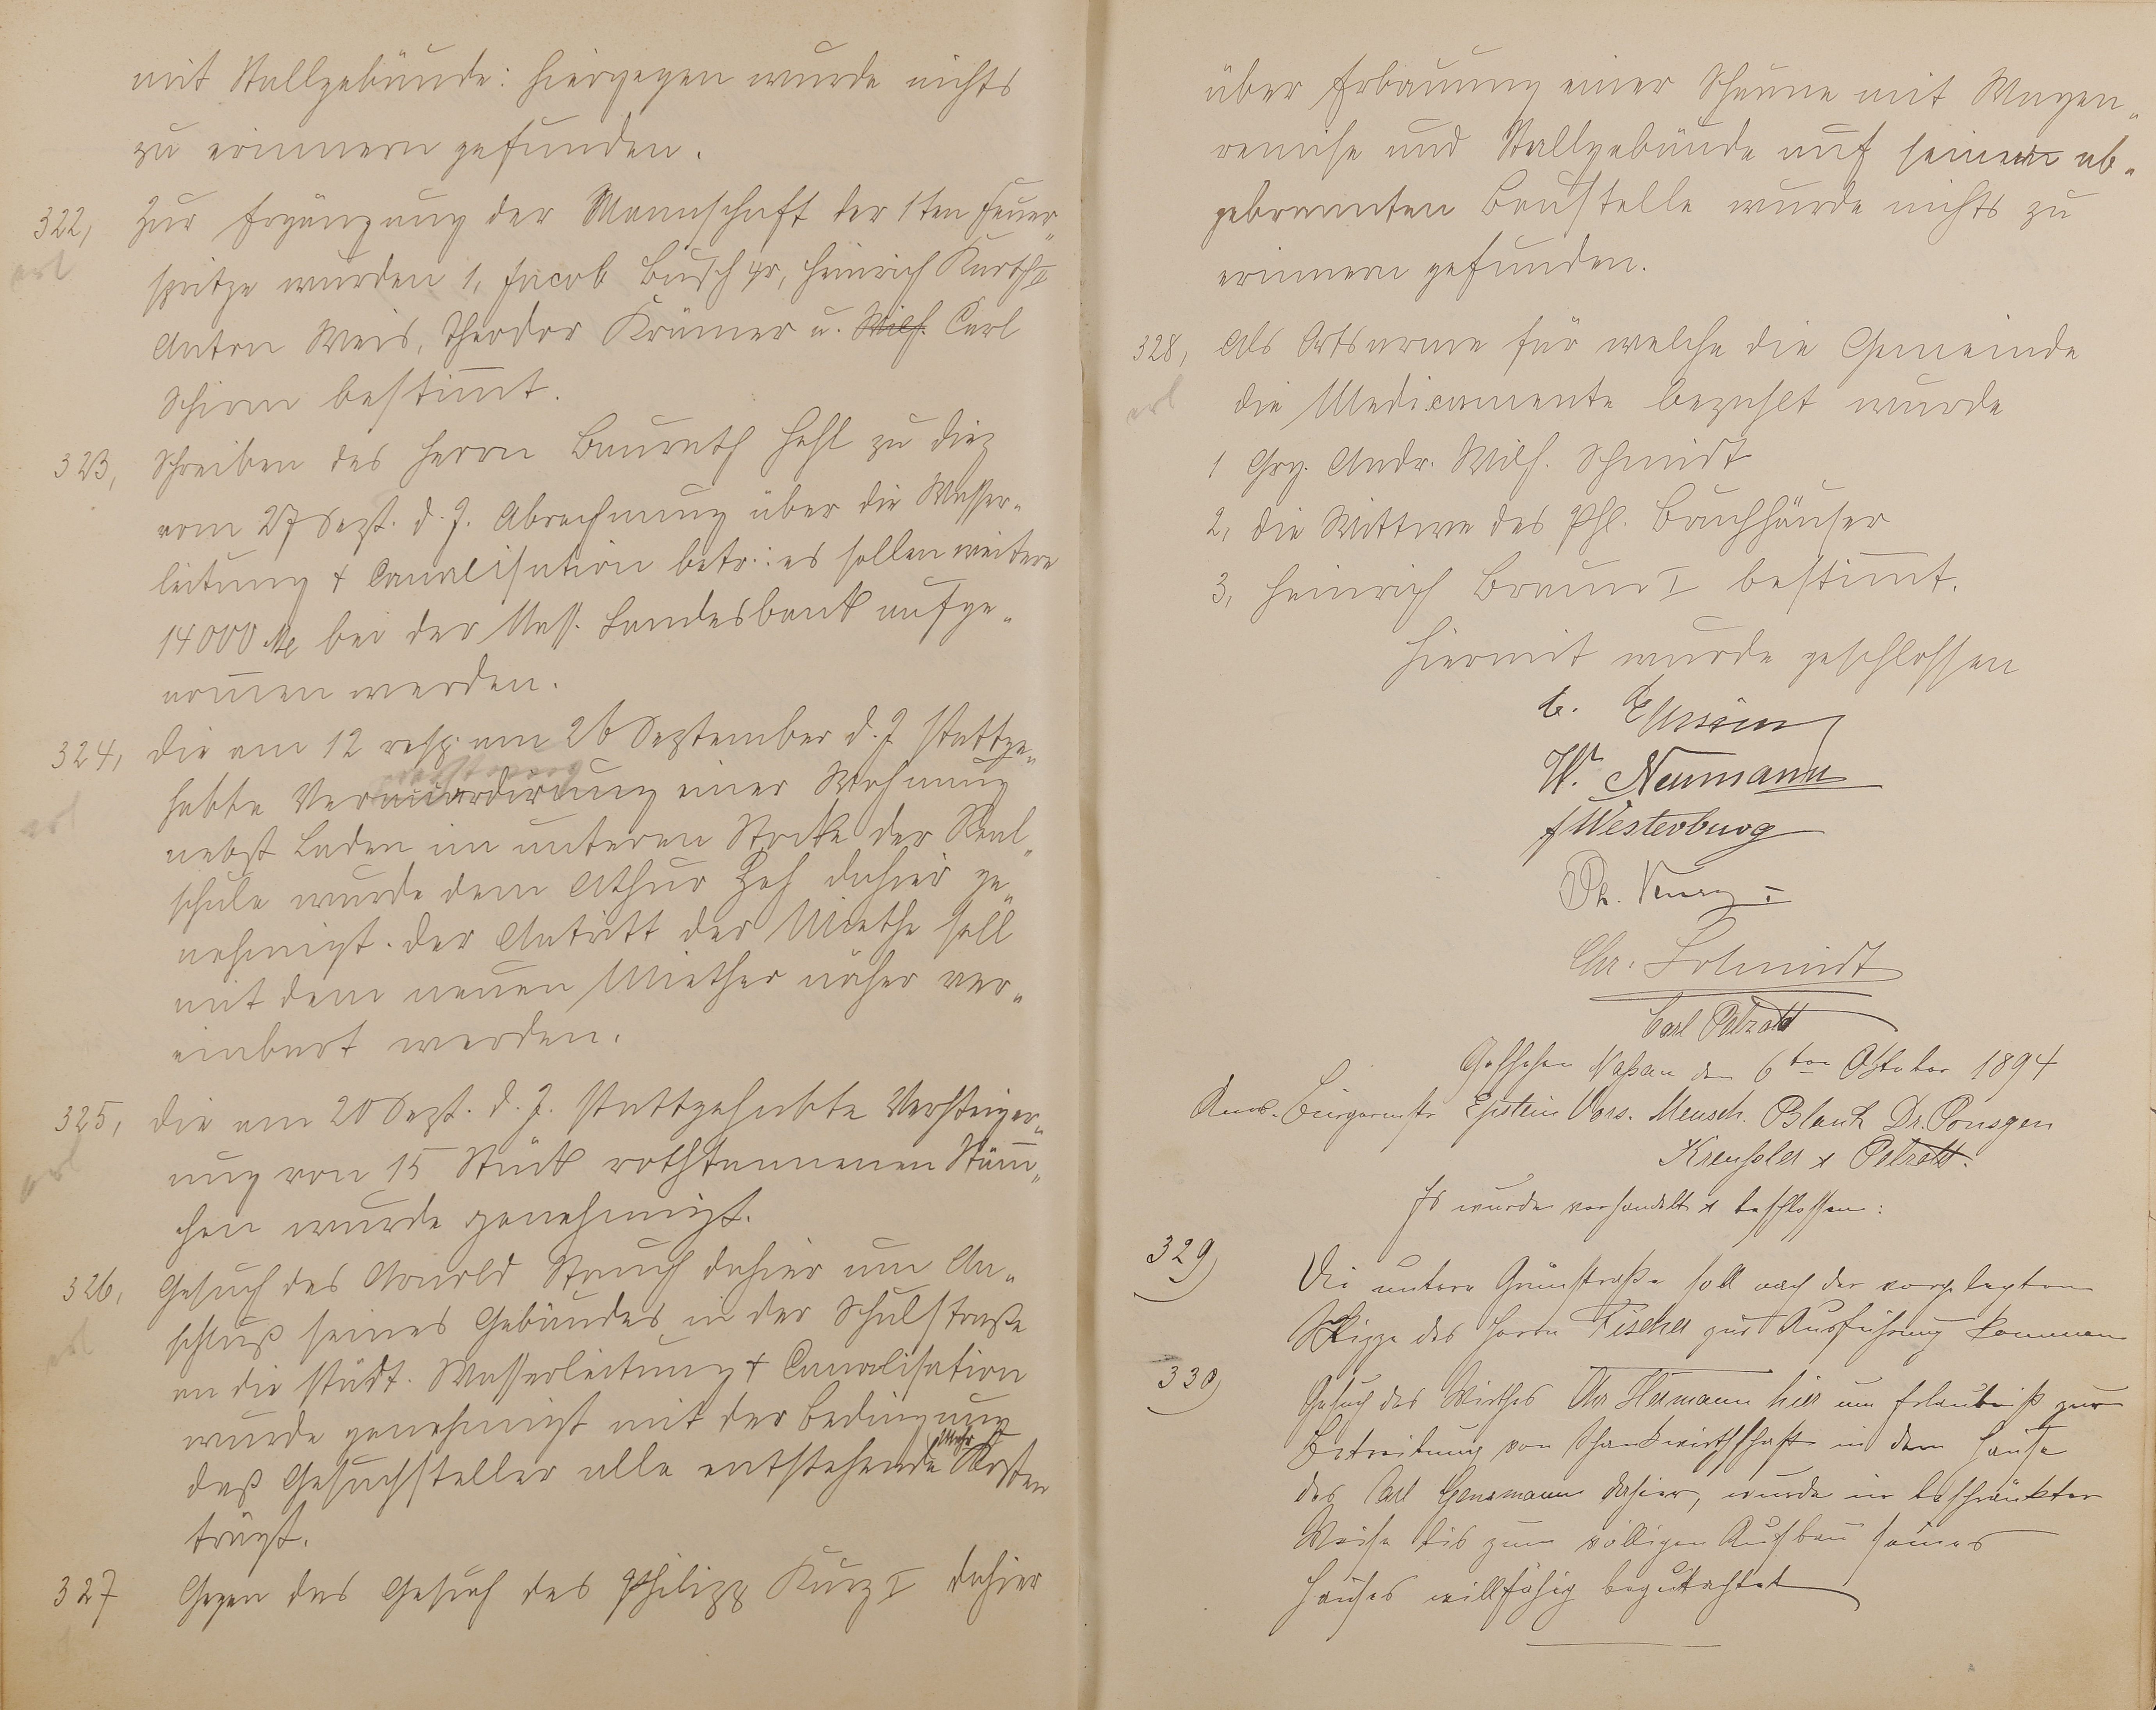 mit Stallgebäude: hiergegen wurde nichts
zu erinnern gefunden.
322, Zur Ergänzung der Mannschaft der 1ten Feuer-
erl
spritze wurden 1, Jacob Busch gr, Heinrich Kurth II
Anton Weis, Theodor Krämer u. Wilh. Carl
Schirm bestimt.
323, Schreiben des Herrn Baurath Hehl zu Diez
vom 27 Sept. d. J. Abrechnung über die Wasser-
leitung + Canalisation betr.: es sollen weitere
14000 M bei der Nass. Landesbank aufge-
nomen werden.
324, die am 12 resp. am 26 September d. J stattge-
erl
habte Vermiethung einer Wohnung
nebst Laden im unteren Stocke der Real-
schule wurde dem Athur Zeh dahier ge-
nehmigt. der Antritt der Miethe soll
mit dem neuen Miether näher ver-
einbart werden.
325, die am 20 Sept. d. J. stattgehabte Versteiger-
erl
ung von 15 Stück rothtannenen Stäm-
chen wurde genehmigt.
326, Gesuch des Arnold Strauch dahier um An-
schluß seines Gebäudes in der Schulstraße
erl
an die städt. Wasserleitung + Canalisation
wurde genehmigt mit der Bedingung
daß Gesuchsteller alle entstehende Mehr Kosten
trägt.
327 Gegen das Gesuch des Philipp Kurz I dahier
über Erbauung einer Scheune mit Wagen-
remise und Stallgebäude auf seiner ab-
gebrannten Baustelle wurde nichts zu
erinnern gefunden.
328, Als Ortsarme für welche die Gemeinde
erl
die Medicamente bezahlt wurde
1 Grg. Andr. Wilh. Schmidt
2, die Wittwe des Phl. Bruchhäuser
3, Heinrich Braun I bestimt.
Hiermit wurde geschlossen
W. Neumann
Westerburg
Chr. Schmidt
Carl Pelzatt
Geschehen Naßau den 6ten October 1894
Anw. Bürgermstr Epstein Vors. Meusch. Blank Dr. Ponsgen
Kreuholes x Pelzatt.
Es wurde verhandelt x beschlossen:
329) Die untere Grünstraße soll nach der vorgelegten
Skizze des Herrn Fischer zur Ausführung kommen
330) Gesuch des Wirthes Chr Hermann hier um Erlaubniß zur
Betreibung von Schankwirthschaft in dem Hause
des Carl dahier, wurde in beschränkter
Weise bis zum völligen Aufbau seines
Hauses willfähig begutachtet